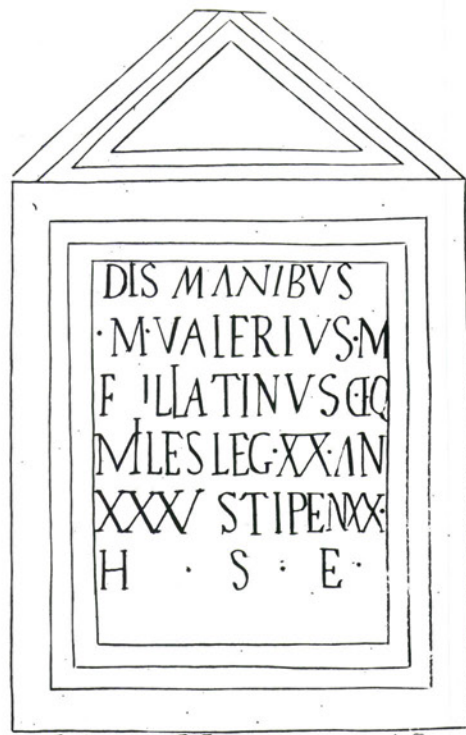 DIS MANIBVS
·M·VALERIVS·M
FIL LATINVS C·EQ
MILES LEG·XX·AN
XXXV STIPEN XX·
H · S · E ·